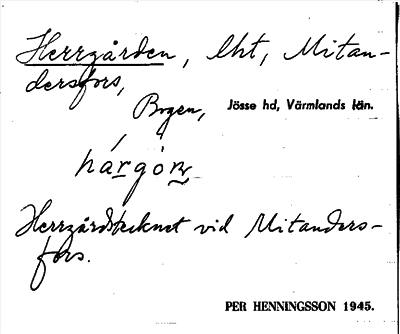 Herrgården, lht, Mitan-
dersfors,
Bogen, Jösse hd, Värmlands län.
hárgòṇ
Herrgårdstecknet vid Mitanders-
fors.
PER HENNINGSSON 1945.